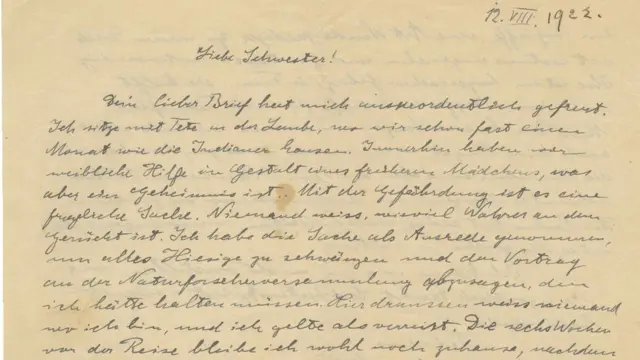 12. VIII. 1922.
Liebe Schwester!
Dein lieber Brief hat mich ausserordentlich gefreut.
Ich sitze mit Tete in der Laube, wo wir schon fast einen
Monat wie die Indianer hausen. Immerhin haben wir
weibliche Hilfe in Gestalt eines früheren Mädchens, was
aber ein Geheimnis ist.. Mit der Gefährdung ist es eine
fragliche Sache. Niemand weiss, wieviel Wahres an dem
Gerücht ist. Ich habe die Sache als Ausrede genommen,
um alles Hiesige zu schwänzen und den Vortrag
an der Naturforscherversammlung abzusagen, den
ich hätte halten müssen. Hier draussen weiss niemand
wo ich bin, und ich gelte als verreist. Die sechs Wochen
vor der Reise bleibe ich wohl noch zuhause, nachdem